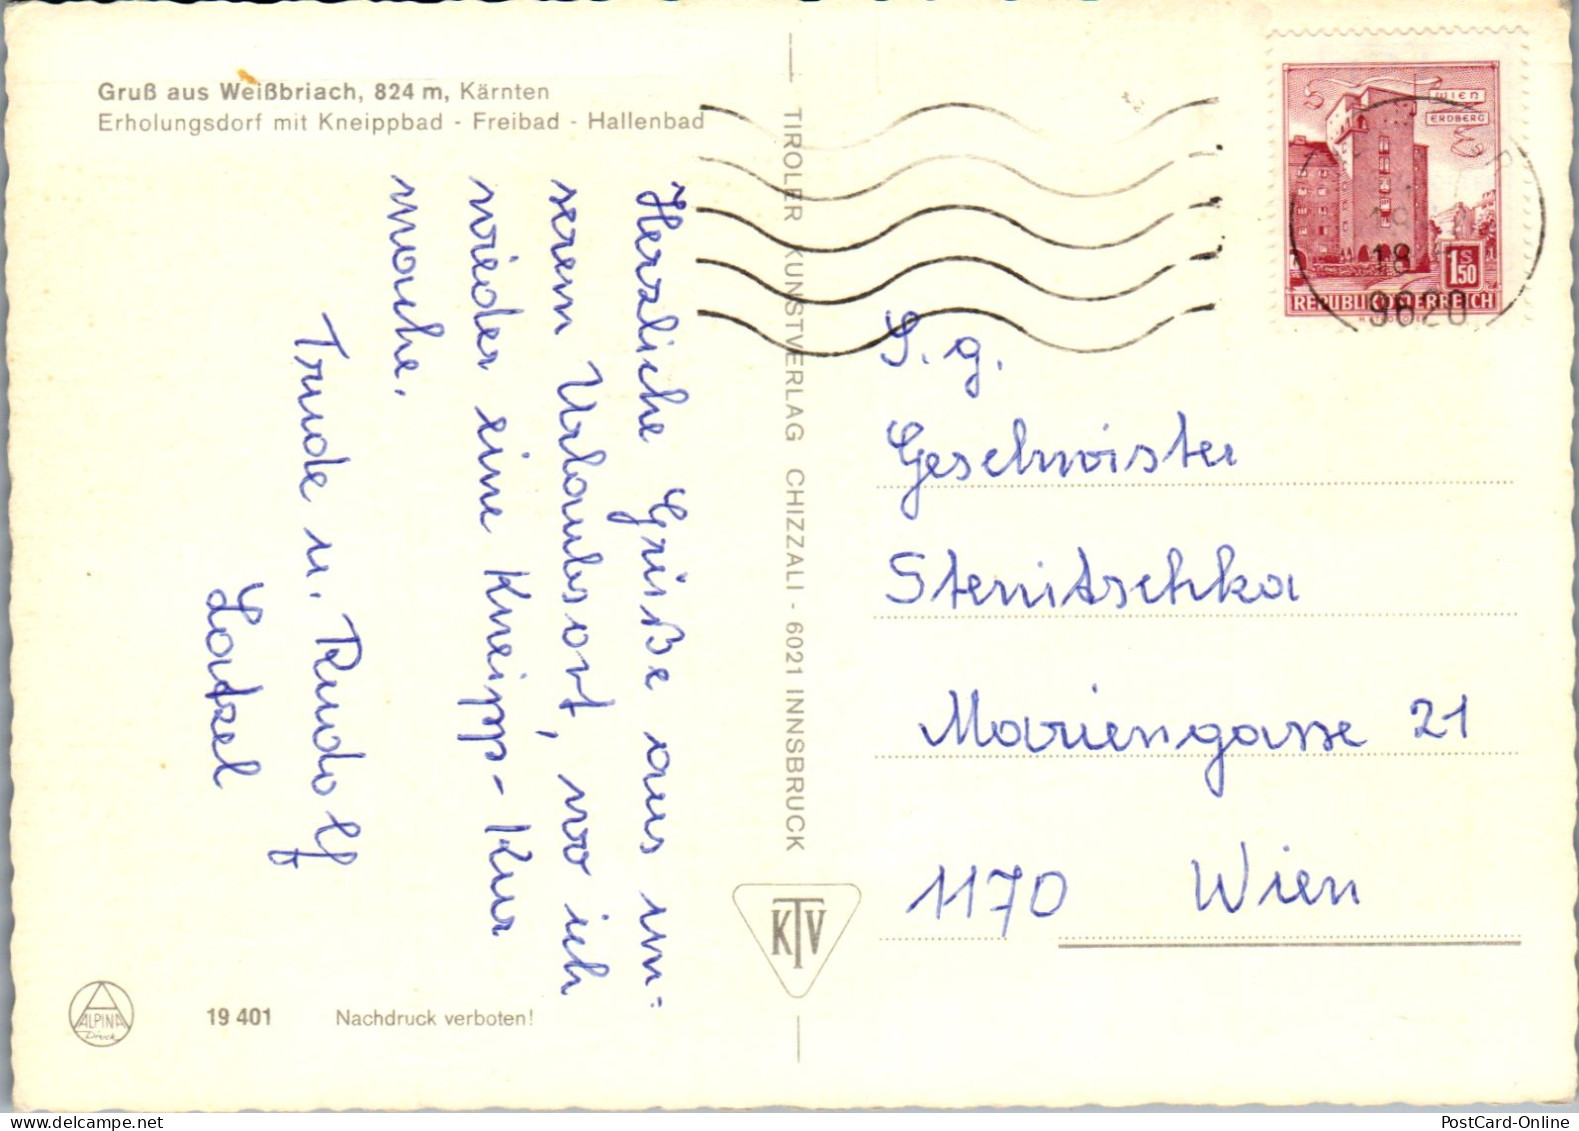 Gruß aus Weißbriach, 824 m, Kärnten
Erholungsdorf mit Kneippbad - Freibad - Hallenbad
Herzliche Grüße aus un=
serem Urlaubsort, wo ich
wieder eine Kneipp-Kur
mache.
Trude u. Rudolf
Latzel
TIROLER KUNSTVERLAG CHIZZALI - 6021 INNSBRUCK
KTV
WIEN
ERDBERG
1S50
REPUBLIK ÖSTERREICH
18
9620
S. g.
Geschwister
Stenitschka
Mariengasse 21
1170 Wien
ALPINA
Druck
19 401 Nachdruck verboten!
PostCard-Online